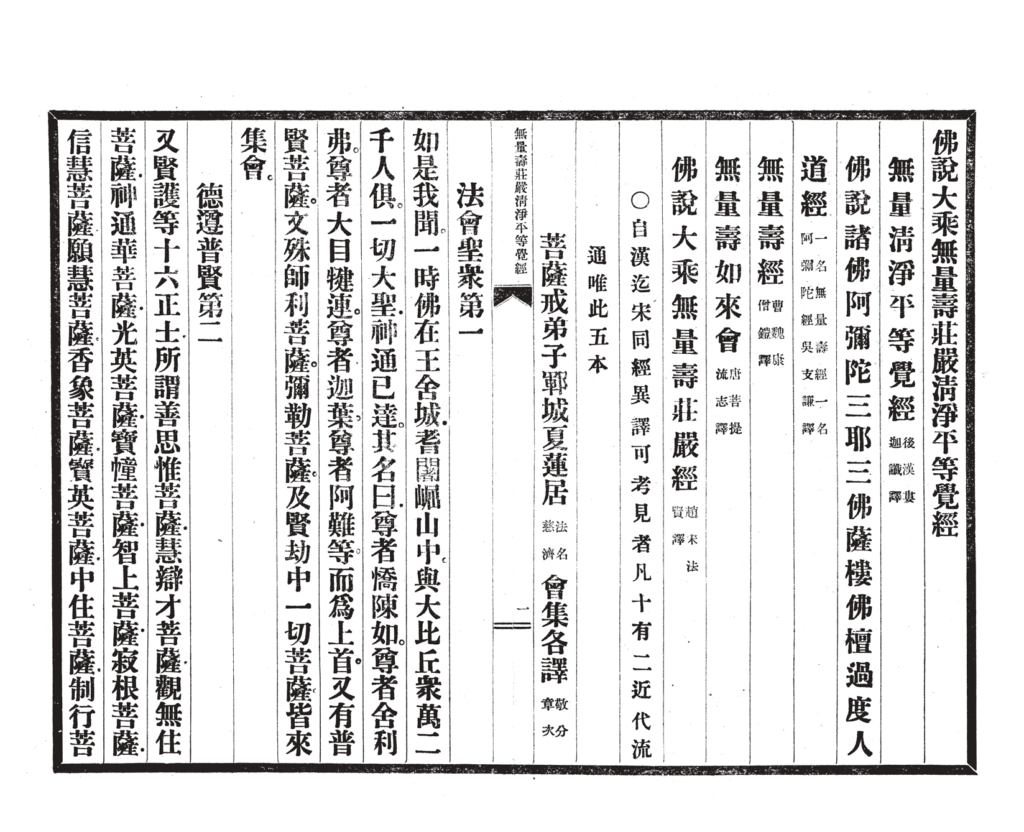 佛說大乘無量壽莊嚴淸淨平等覺經
無量淸淨平等覺經 後漢婁迦讖譯
佛說諸佛阿彌陀三耶三佛薩樓佛檀過度人
道經 一名無量壽經一名阿彌陀經吳支謙譯
無量壽經 曹魏康僧鎧譯
無量壽如來會 唐菩提流志譯
佛說大乘無量壽莊嚴經 趙宋法賢譯
○自漢迄宋同經異譯可考見者凡十有二近代流
通唯此五本
菩薩戒弟子鄆城夏蓮居 法名慈濟 會集各譯 敬分章次
無量壽莊嚴淸淨平等覺經 一
法會聖衆第一
如是我聞。一時佛在王舍城。耆闍崛山中。與大比丘衆萬二
千人俱。一切大聖。神通已達。其名曰。尊者憍陳如。尊者舍利
弗。尊者大目犍連。尊者迦葉。尊者阿難等。而爲上首。又有普
賢菩薩。文殊師利菩薩。彌勒菩薩。及賢劫中一切菩薩。皆來
集會。
德遵普賢第二
又賢護等十六正士。所謂善思惟菩薩。慧辯才菩薩。觀無住
菩薩。神通華菩薩。光英菩薩。寶幢菩薩。智上菩薩。寂根菩薩。
信慧菩薩。願慧菩薩。香象菩薩。寶英菩薩。中住菩薩。制行菩